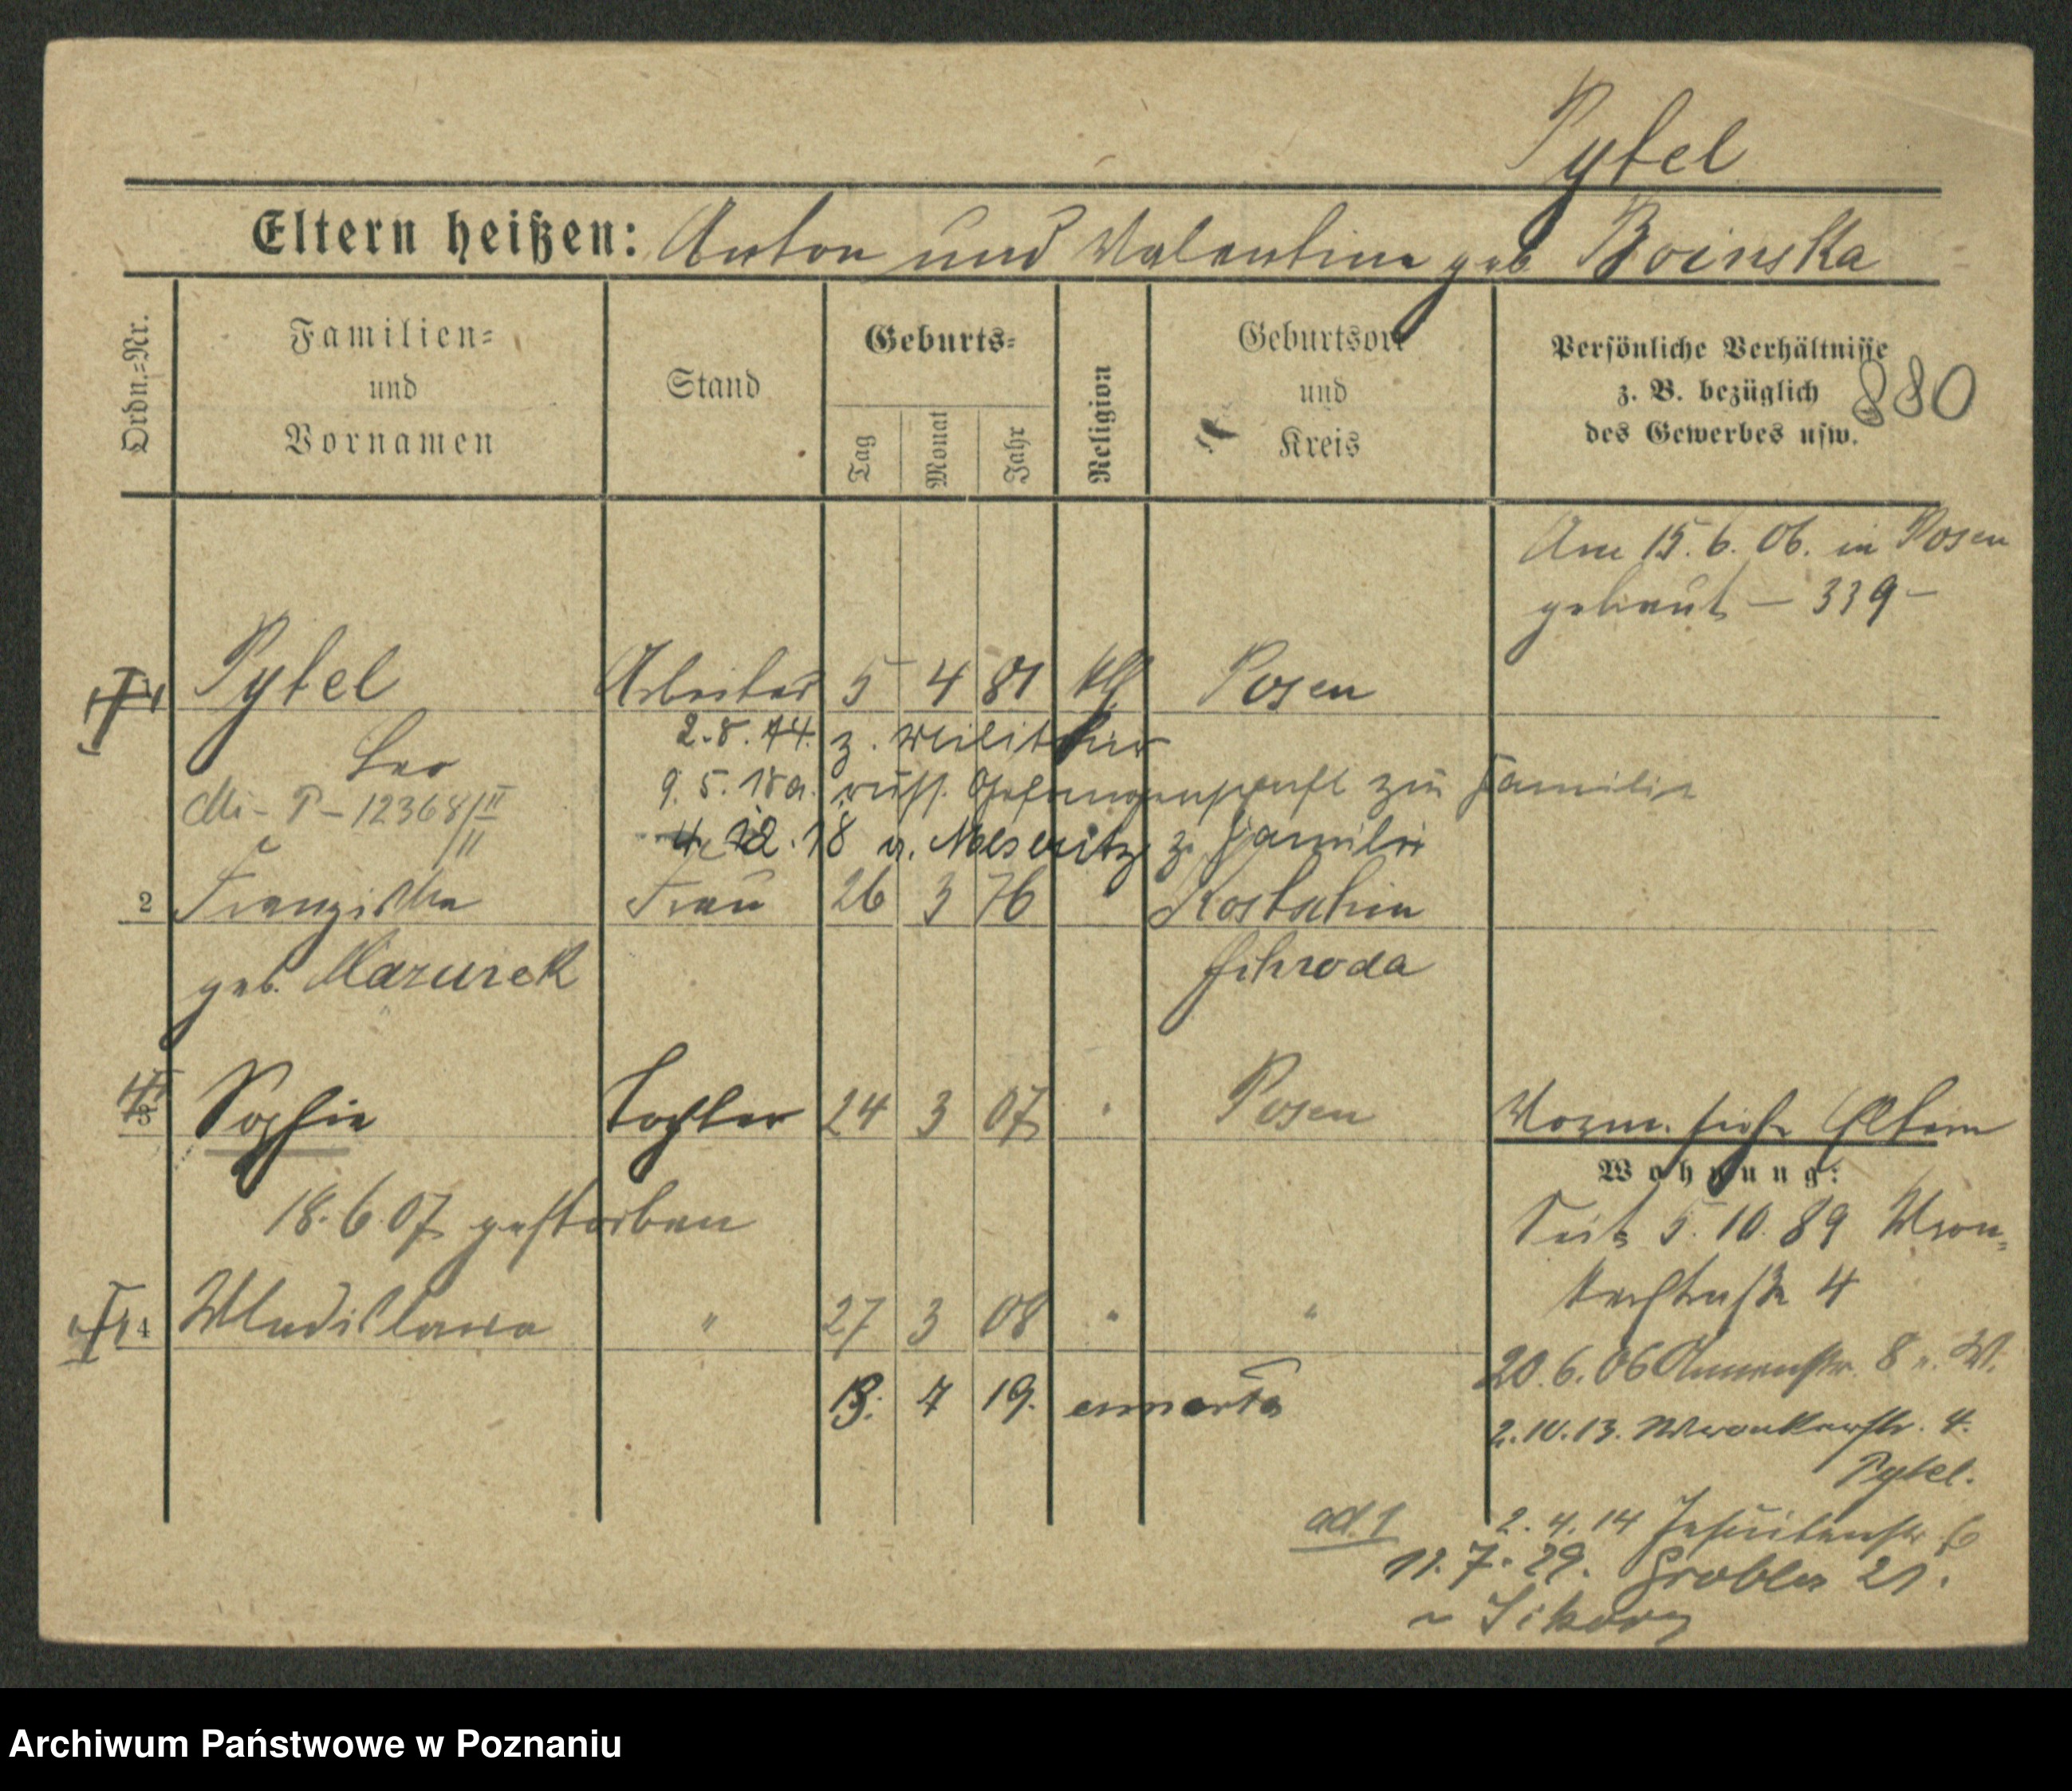 Pytel
Eltern heißen: Anton und Valentine geb Boinska
Ordn.-Nr.
Familien-
und
Vornamen
Stand
Geburts-
Tag
Monat
Jahr
Religion
Geburtsort
und
Kreis
Persönliche Verhältnisse
z. B. bezüglich
des Gewerbes usw.
880
Am 15. 6. 06. in Posen
getraut – 339 –
Pytel Arbeiter 5 4 81 kth Posen
2. 8. 14. z. Militär
Leo
9. 5. 18 a. russ. Gefangenschaft zur Familie
Mi - P - 12368/II
12. 18 v. Meseritz z. Familie
2 Franziska Frau 26 3 76 " Kostschin
geb. Mazurek Schroda
3 Sophie Tochter 24 3 07 " Posen
Vorm. siehe Eltern
Wohnung:
18. 6. 07 gestorben
Seit 5. 10. 89 Wron-
kerstraße 4
4 Wladislawa " 27 3 08 " "
20. 6. 06 8
13. 7 19. enmarto
2. 10. 13. Wronkerstr. 4.
Pytel.
ad. 1
2. 4. 14 Jesuitenstr. 6
11. 7. 29. Grobla 21.
Sikory